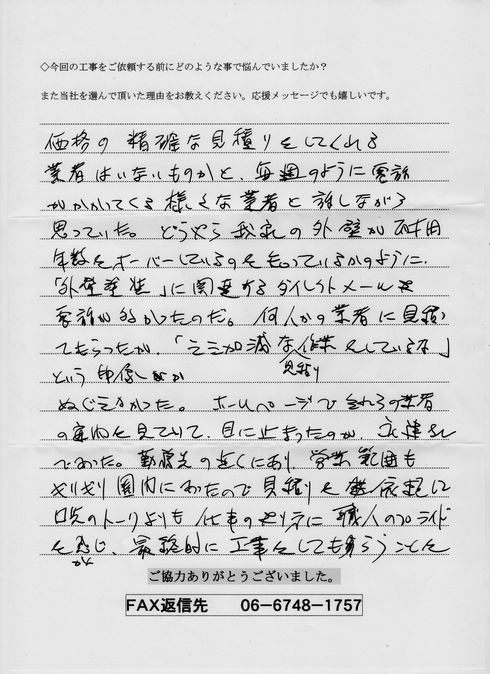 ◇今回の工事をご依頼する前にどのような事で悩んでいましたか？
また当社を選んで頂いた理由をお教えください。応援メッセージでも嬉しいです。
価格の精確な見積りをしてくれる
業者はいないものかと、毎週のように電話
がかかいてくる様々な業者と話しながら
思っていた。どうやら我家の外壁が耐用
年数をオーバーしているのを知っているかのように、
「外壁塗装」に関するダイレクトメールや
電話が多かったのだ。何人かの業者に見積っ
てもらったが、「いい加減な見積り作業をしているな」
という印象が
ぬぐえなかった。ホームページで金れらの業者
の案内を見ていて、目に止まったのが、
であった。勤務先の近くにあり、営業範囲も
ギリギリ圏内にあったので見積りを依頼し
口先のトークよりも仕事のやり方に職人のプライド
を感じ、最終的に工事をしてもらうことに
ご協力ありがとうございました。
FAX返信先 06-6748-1757